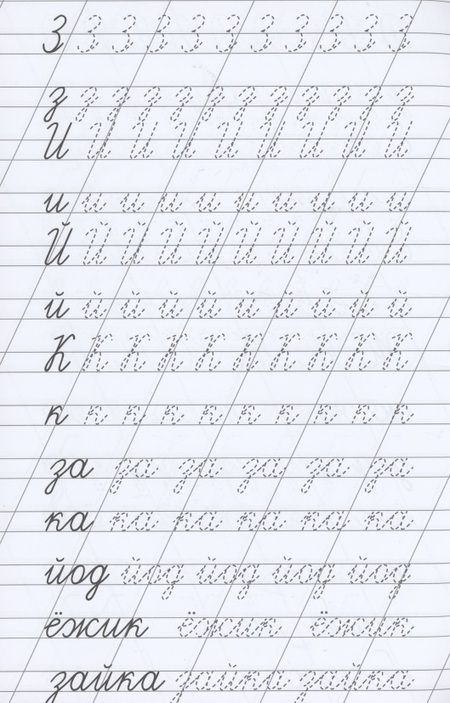 З З З З З З З З З З З
з з з з з з з з з з з
И И И И И И И И И И
и и и и и и и и и и
Й Й Й Й Й Й Й Й Й Й
й й й й й й й й й й
К К К К К К К К К К
к к к к к к к к к к
за за за за за за
ка ка ка ка ка ка
йод йод йод йод йод
ёжик ёжик ёжик
зайка зайка зайка